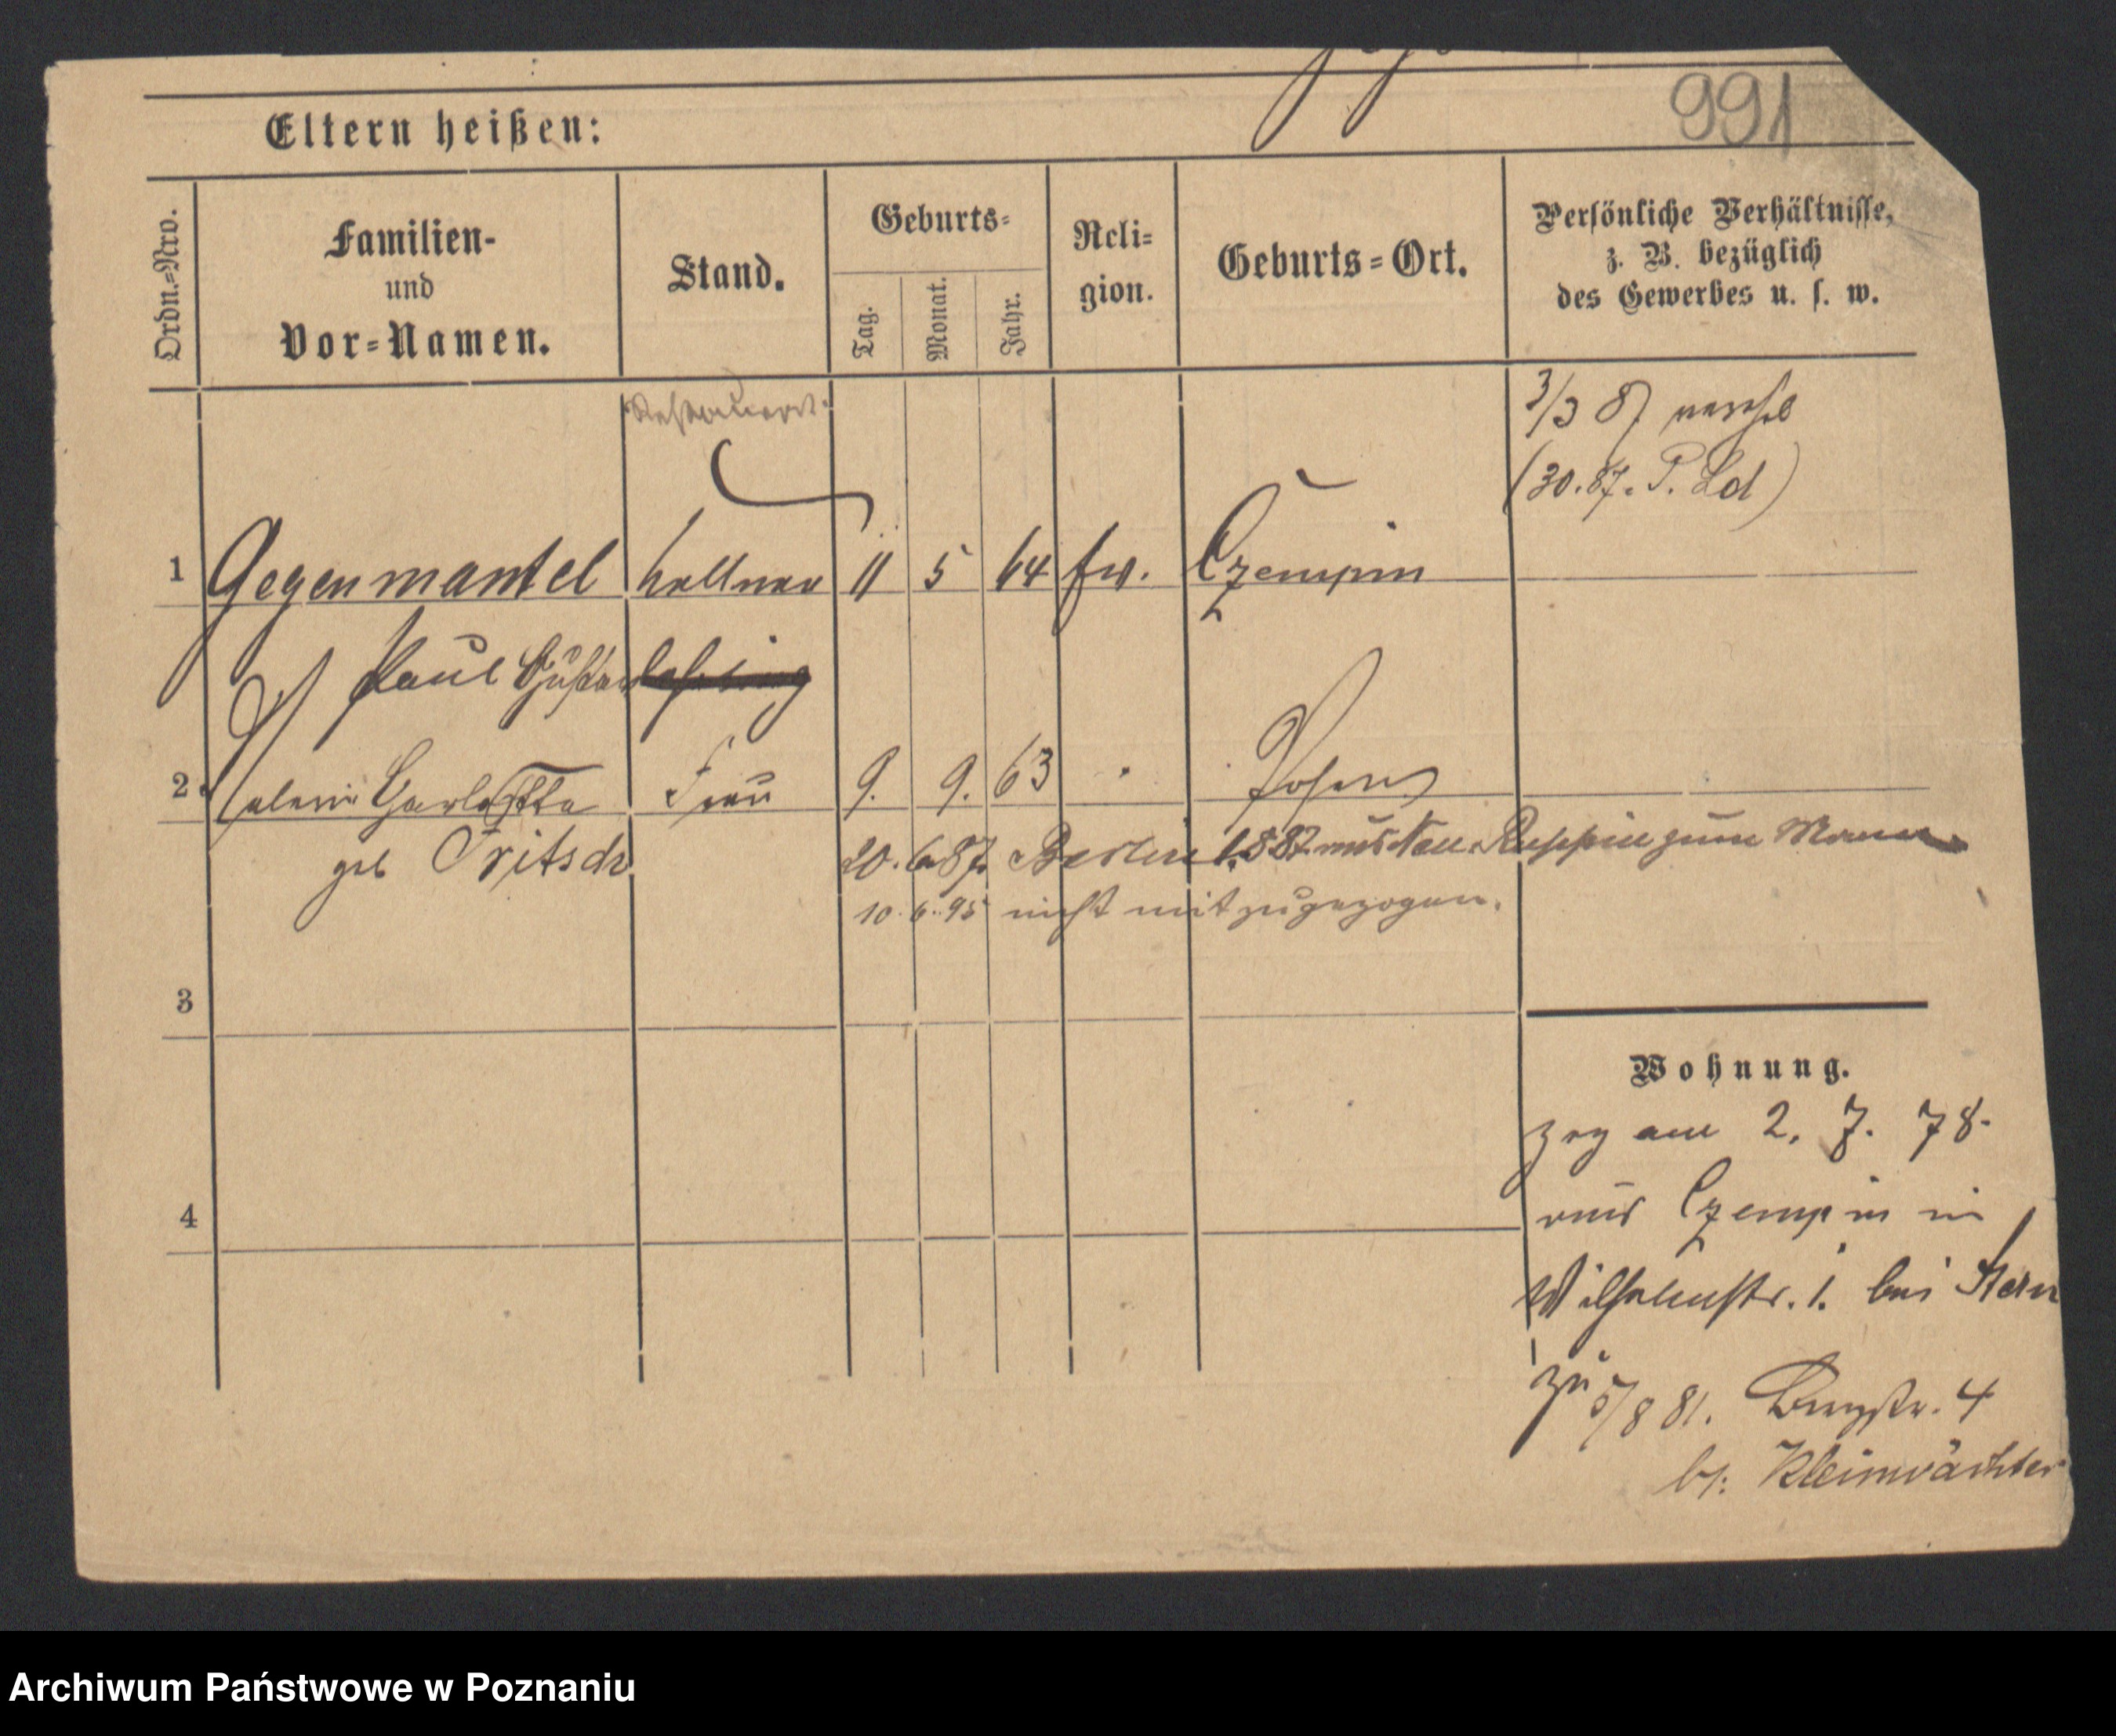 991
Eltern heißen:
Ordn.=Nro.
Familien-
und
Vor=Namen.
Stand.
Geburts=
Tag.
Monat.
Jahr.
Reli=
gion.
Geburts=Ort.
Persönliche Verhältnisse,
z. B. bezüglich
des Gewerbes u. s. w.
Restaurat.
3/3 87
(30.87. P. Ld)
1 Gegenmantel Kellner 11 5 64 ev. Czempin
Paul Gustav
2. Frau 9. 9. 63 " Posen
geb Fritsch 20.6.87. Berlin 1.8 87 aus Neu-Ruppin zum Manne
10.6.95 nicht mitzugezogen.
3
4
Wohnung.
zog am 2. 7. 78.
aus Czempin in
Wilhelmstr. 1. bei Stern
zu 5/8 81. Bergstr. 4
b/: Kleinwächter
Archiwum Państwowe w Poznaniu